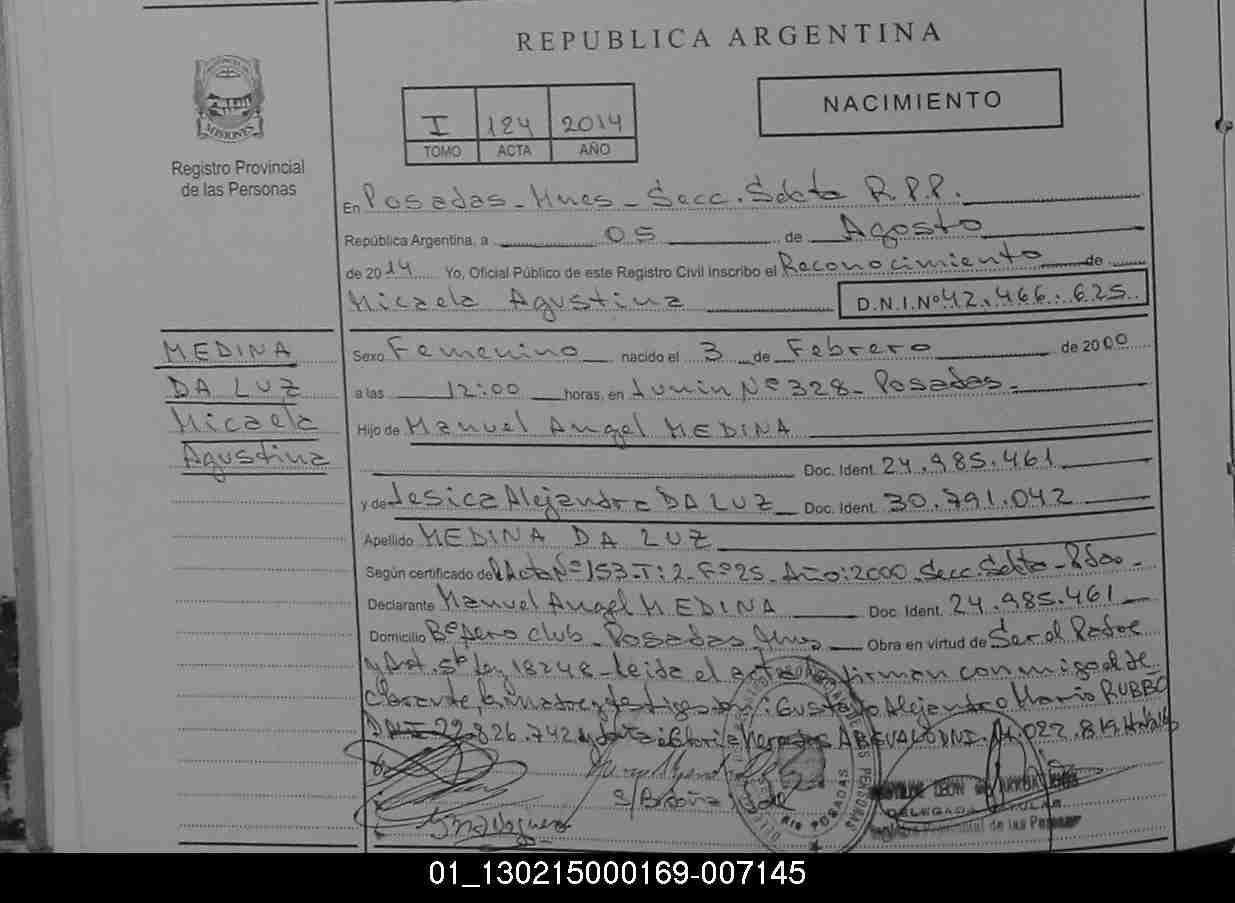 REPUBLICA ARGENTINA
MISIONES
Registro Provincial
de las Personas
I 124 2014
TOMO ACTA AÑO
NACIMIENTO
En Posadas - Mnes - Secc. Sexta R.P.P.
República Argentina, a 05 de Agosto
de 2014 Yo, Oficial Público de este Registro Civil inscribo el Reconocimiento de
Micaela Agustina D.N.I.Nº 42.466.625
MEDINA
DA LUZ
Micaela
Agustina
Sexo Femenino nacido el 3 de Febrero de 2000
a las 12:00 horas, en Junin Nº 328 - Posadas -
Hijo de Manuel Angel MEDINA
Doc. Ident. 24.985.461
y de Jesica Alejandra DA LUZ Doc. Ident. 30.791.042
Apellido MEDINA DA LUZ
Según certificado del Acta Nº 153-T:2-Fº25-Año:2000-Secc. -
Declarante Manuel Angel MEDINA Doc. Ident. 24.985.461
Domicilio Bº Aero Club - Posadas Mnes Obra en virtud de Ser el Padre
y Art. 5º Ley 18248 - leida el acta firman conmigo el de
clarante la madre y testigos Gustavo Alejandro Mario RUBBO
DNI 22.826.742 y
DELEGADA TITULAR
Registro Provincial de las Personas
POSADAS
01_130215000169-007145